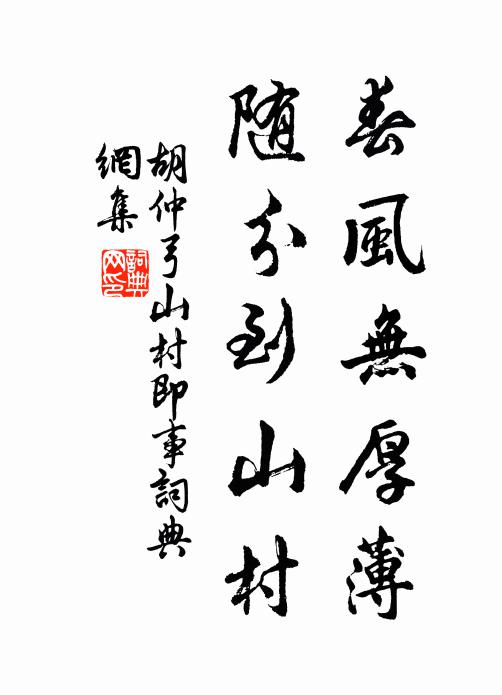 春風無厚薄
随分到山村
胡仲弓山村即事詞典
網集
詞典网印